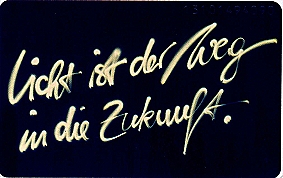 Licht ist der Weg
in die Zukunft.